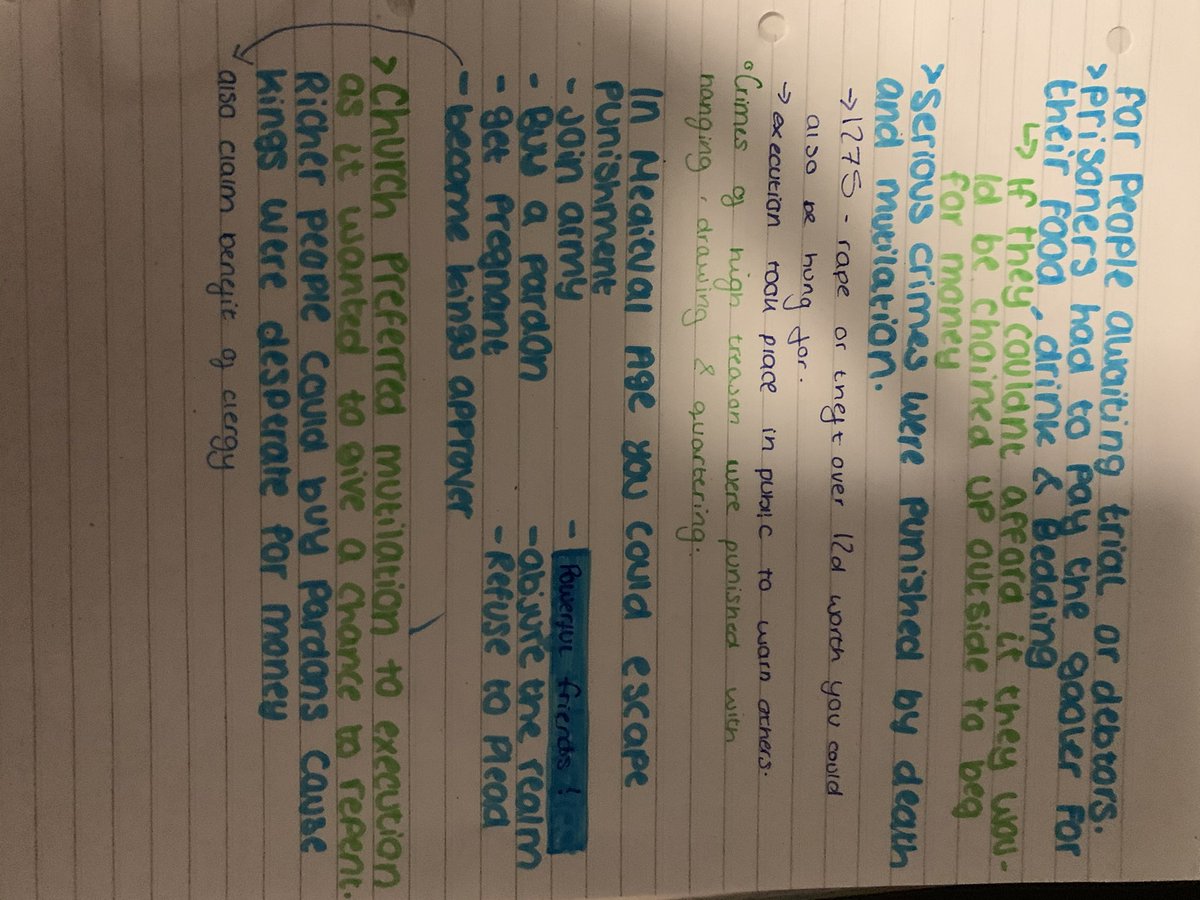 for people awaiting trial or debtors.
> prisoners had to pay the gaoler for
their food, drink & Bedding
↳ If they couldnt afford it they wou-
ld be chained up outside to beg
for money
> Serious crimes were punished by death
and mutilation.
→ 1275 - rape or theft over 12d worth you could
also be hung for.
→ execution took place in public to warn others.
° Crimes of high treason were punished with
hanging, drawing & quartering.
In Medieval Age you could escape
punishment
- Join army - Powerful friends!
- Buy a Pardon - abjure the realm
- get Pregnant - Refuse to Plead
- become kings approver
> Church Preferred mutilation to execution
as it wanted to give a chance to repent.
Richer people could buy Pardons cause
kings were desperate for money
also claim benefit of clergy